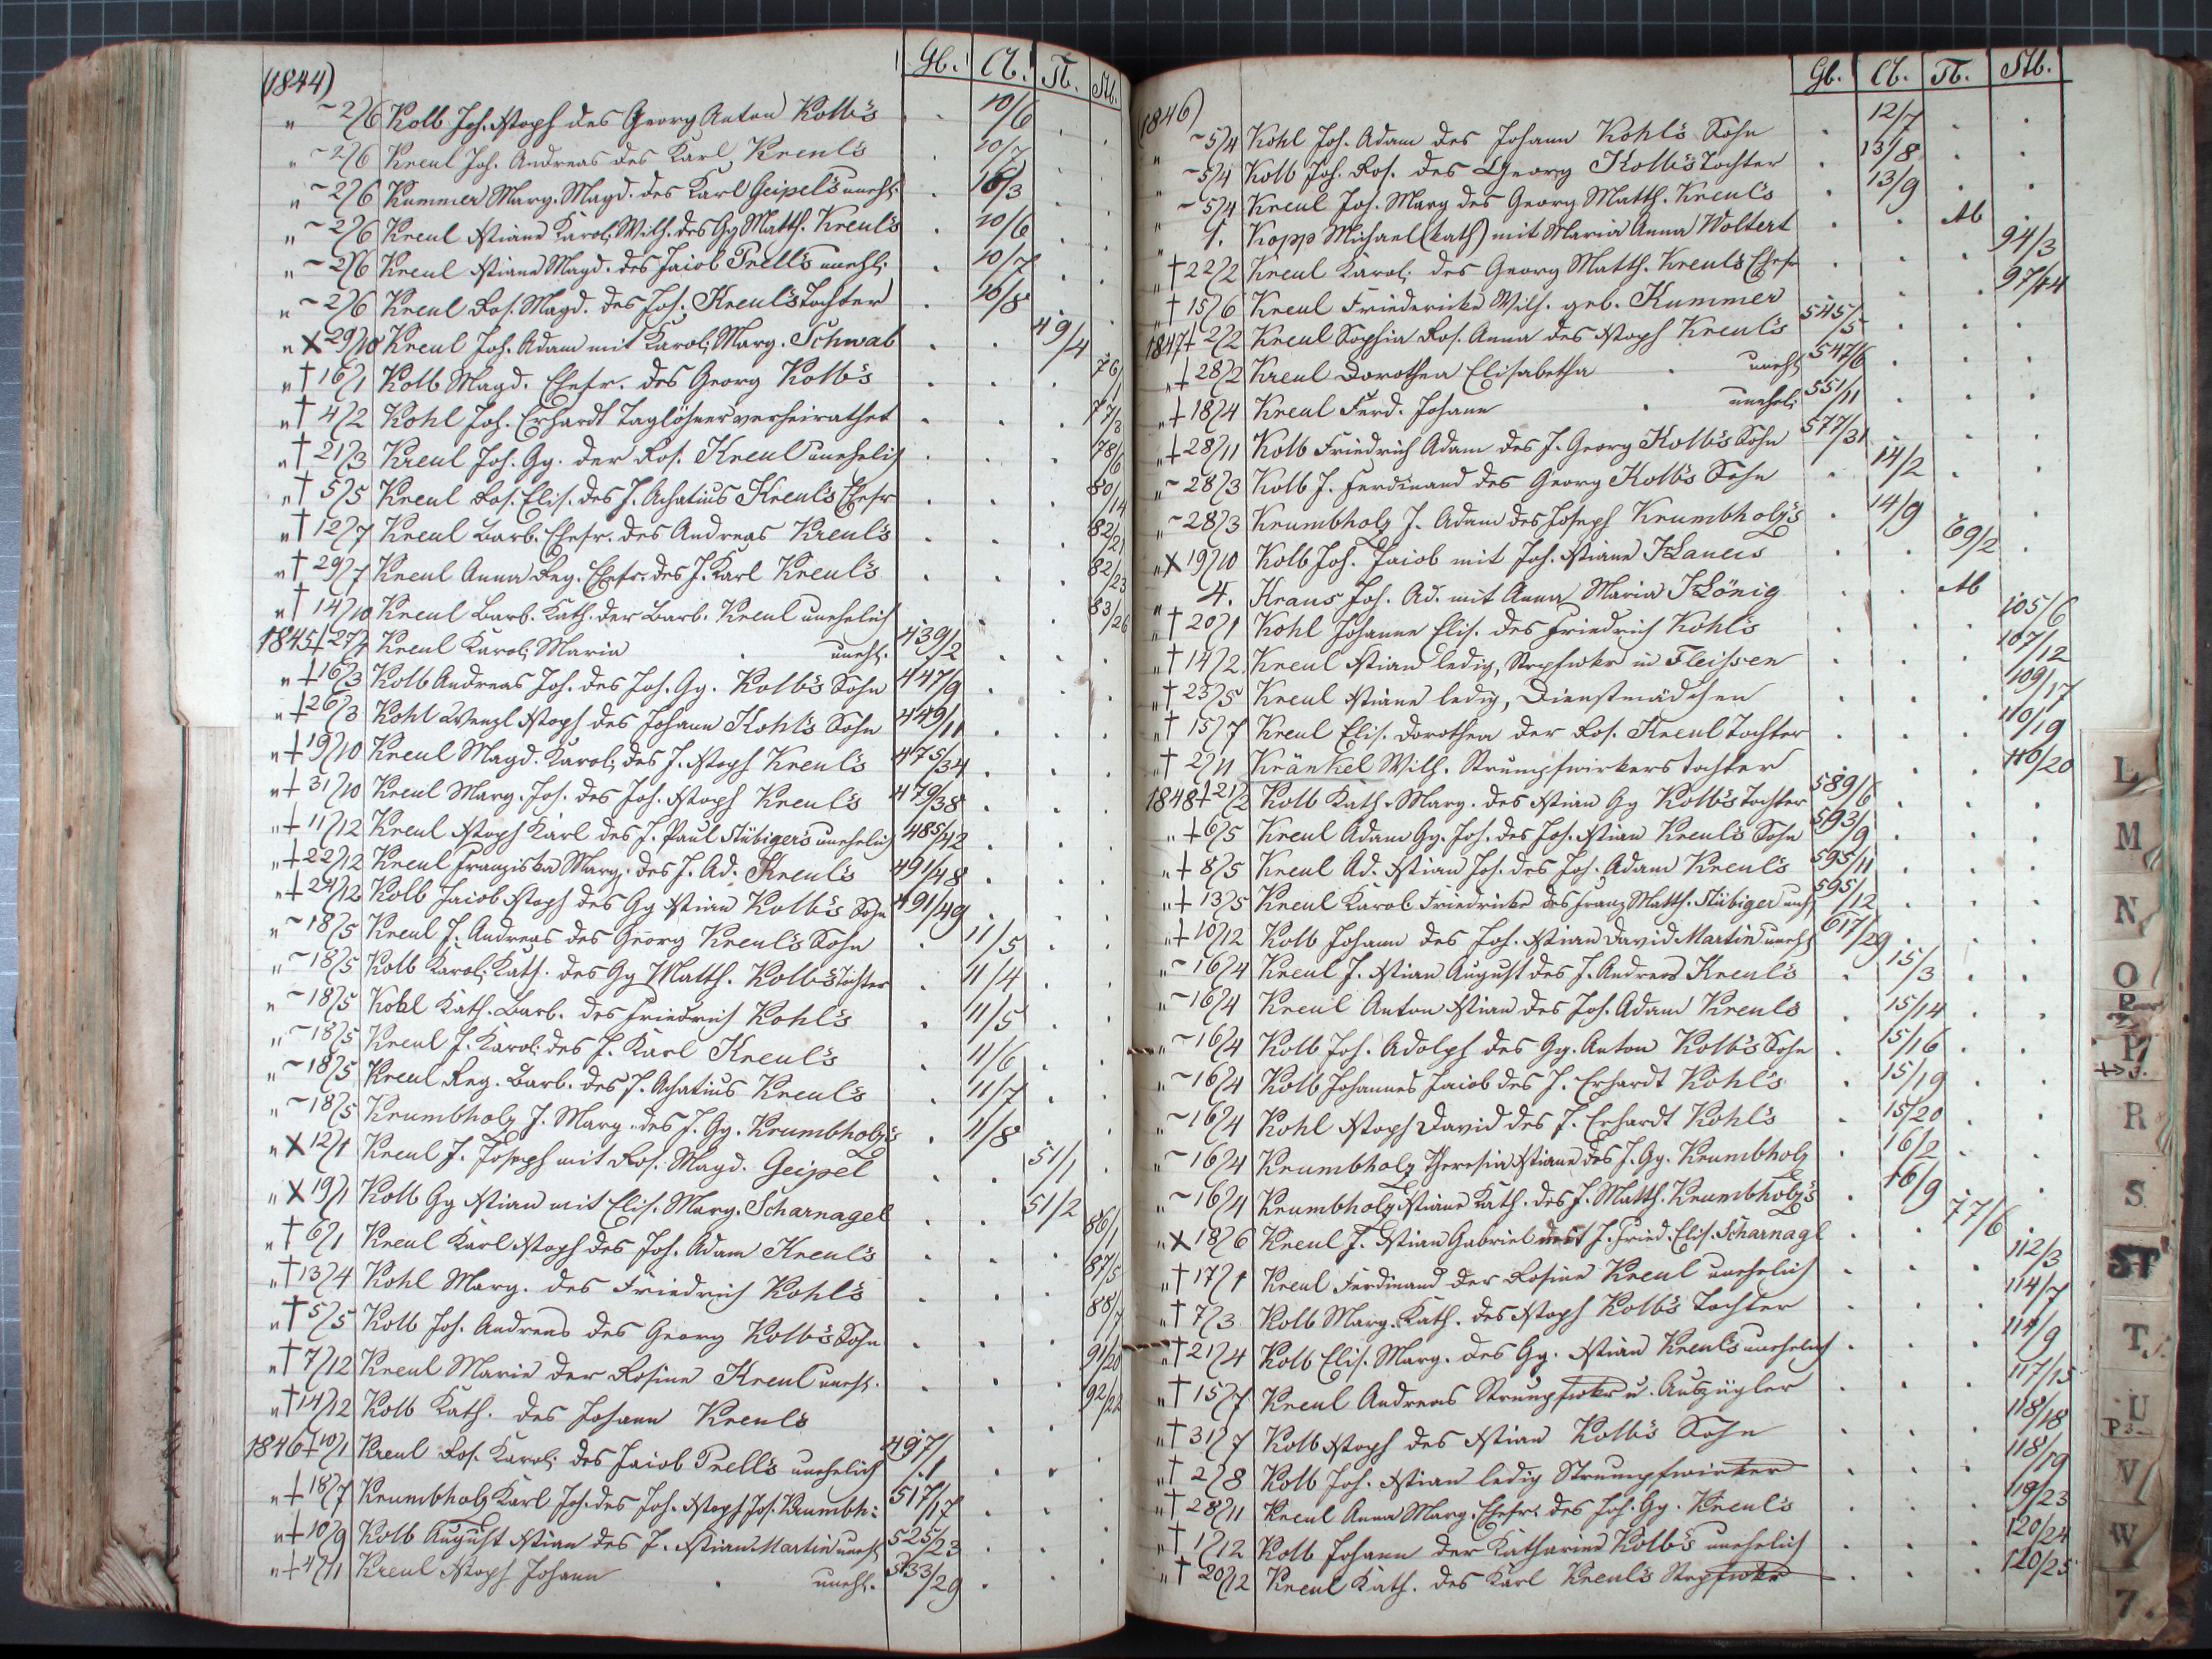 (1844) Gb. Cb. Tb. Stb.
" ~ 2/6 Kolb Joh. Xstoph des Georg Anton Kolb's 10/6
" ~ 2/6 Kreul Joh. Andreas des Karl Kreul's 10/7
" ~ 2/6 Kummer Marg. Magd. des Karl Geipel's unehl. 10/3
" ~ 2/6 Kreul Xstiane Karol. Wilh. des Gg Matth. Kreul's 10/6
" ~ 2/6 Kreul Xstiane Magd. des Jakob Prell's unehl. 10/7
" ~ 2/6 Kreul Ros. Magd. des Joh. Kreul's Tochter 10/8
" X 29/10 Kreul Joh. Adam mit Karol. Marg. Schwab 49/4
" † 16/1 Kolb Magd. Ehefr. des Georg Kolb's 76/1
" † 4/2 Kohl Joh. Erhardt Taglöhner verheirathet 77/3
" † 21/3 Kreul Joh. Gg. der Ros. Kreul unehelich 78/6
" † 5/5 Kreul Ros. Elis. des J. Achatius Kreul's Ehefr 80/14
" † 12/7 Kreul Barb. Ehefr. des Andreas Kreul's 82/21
" † 29/7 Kreul Anna Reg. Ehefr. des J. Karl Kreul's 82/23
" † 14/10 Kreul Barb. Kath. der Barb. Kreul unehelich 83/26
1845 + 27/1 Kreul Karol. Maria unehl. 439/2
" + 16/3 Kolb Andreas Joh. des Joh. Gg. Kolb's Sohn 447/9
" + 26/3 Kohl Wenzl Xstoph des Johann Kohl's Sohn 449/11
" + 19/10 Kreul Magd. Karol. des J. Xstoph Kreul's 475/34
" + 31/10 Kreul Marg. Joh. des Joh. Xstoph Kreul's 479/38
" + 11/12 Kreul Xstoph Karl des J. Paul Stübiger's unehelich 485/42
" + 22/12 Kreul Franziska Marg. des J. Ad. Kreul's 491/48
" + 24/12 Kolb Jakob Xstoph des Gg Xstian Kolb's Sohn 491/49
" ~ 18/5 Kreul J. Andreas des Georg Kreul's Sohn 11/5
" ~ 18/5 Kolb Karol. Kath. des Gg Matth. Kolb's Tochter 11/4
" ~ 18/5 Kohl Kath. Barb. des Friedrich Kohl's 11/5
" ~ 18/5 Kreul J. Karol. des J. Karl Kreul's 11/6
" ~ 18/5 Kreul Reg. Barb. des J. Achatius Kreul's 11/7
" ~ 18/5 Krumbholz J. Marg. des J. Gg. Krumbholz's 11/8
" X 12/1 Kreul J. Joseph mit Ros. Magd. Geipel 51/1
" X 19/1 Kolb Gg Xstian mit Elis. Marg. Scharnagel 51/2
" † 6/1 Kreul Karl Xstoph des Joh. Adam Kreul's 86/1
" † 13/4 Kohl Marg. des Friedrich Kohl's 87/5
" † 5/5 Kolb Joh. Andreas des Georg Kolb's Sohn 88/7
" † 7/12 Kreul Marie der Rosine Kreul unehl. 91/20
" † 14/12 Kolb Kath. des Johann Kreul's 92/22
1846 + 10/1 Kreul Ros. Karol. des Jakob Prell's unehelich 497/1
" + 18/7 Krumbholz Karl Joh. des Joh. Xstoph Jos. Krumbh: 517/17
" + 10/9 Kolb August Xstian des J. Xstian Martin unehl 525/23
" + 4/11 Kreul Xstoph Johann unehl. 533/29
(1846) Gb. Cb. Tb. Stb.
" ~ 5/4 Kohl Joh. Adam des Johann Kohl's Sohn 12/7
" ~ 5/4 Kolb Joh. Ros. des Georg Kolb's Tochter 13/8
" ~ 5/4 Kreul Joh. Marg des Georg Matth. Kreul's 13/9
" 1. Kopp Michael (kath) mit Maria Anna Woltert Ab
" † 22/2 Kreul Karol. des Georg Matth. Kreul's Ehefr 94/3
" † 15/6 Kreul Friedericke Wilh. geb. Kummer 97/14
1847 + 2/2 Kreul Sophia Ros. Anna des Xstoph Kreul's 545/5
" + 28/2 Kreul Dorothea Elisabetha unehl 547/6
" + 18/4 Kreul Ferd. Johann unehel. 551/11
" + 28/11 Kolb Friedrich Adam des J. Georg Kolb's Sohn 577/31
" ~ 28/3 Kolb J. Ferdinand des Georg Kolb's Sohn 14/2
" ~ 28/3 Krumbholz J. Adam des Joseph Krumbholz's 14/9
" X 19/10 Kolb Joh. Jakob mit Joh. Xstiane 69/2
" 4. Kraus Joh. Ad. mit Anna Maria König Ab
" † 20/1 Kohl Johanne Elis. des Friedrich Kohl's 105/6
" † 14/2 Kreul Xstian ledig, Strpfwkr in Fleissen 107/12
" † 23/5 Kreul Xstiane ledig, Dienstmädchen 109/17
" † 15/7 Kreul Elis. Dorothea der Ros. Kreul Tochter 110/19
" † 2/11 Kränkel Wilh. Strumpfwirkers tochter 110/20
1848 + 21/2 Kolb Kath. Marg. des Xstian Gg Kolb's Tochter 589/6
" + 6/5 Kreul Adam Gg. Joh. des Joh. Xstian Kreul's Sohn 593/9
" + 8/5 Kreul Ad. Xstian Joh. des Joh. Adam Kreul's 595/11
" + 13/5 Kreul Karol. Friedricke des Franz Matth. Stübiger unehl 595/12
" + 10/12 Kolb Johann des Joh. Xstian David Martin unehl 617/29
" ~ 16/4 Kreul J. Xstian August des J. Andreas Kreul's 15/3
" ~ 16/4 Kreul Anton Xstian des Joh. Adam Kreuls 15/14
" ~ 16/4 Kolb Joh. Adolph des Gg. Anton Kolb's Sohn 15/16
" ~ 16/4 Kolb Johannes Jakob des J. Erhardt Kohl's 15/19
" ~ 16/4 Kohl Xstoph David des J. Erhardt Kohl's 15/20
" ~ 16/4 Krumbholz Theresia Xstiane des J. Gg. Krumbholz 16/2
" ~ 16/4 Krumbholz Xstiane Kath. des J. Matth. Krumbholz's 16/9
" X 18/6 Kreul J. Xstian Gabriel mit J. Fried. Elis. Scharnagl 77/6
" † 17/1 Kreul Ferdinand der Rosine Kreul unehelich 112/3
" † 7/3 Kolb Marg. Kath. des Xstoph Kolb's Tochter 114/7
" † 21/4 Kolb Elis. Marg. des Gg. Xstian Kreul's unehelich 114/9
" † 15/7 Kreul Andreas Strumpfwkr u. Auszügler 117/15
" † 31/7 Kolb Xstoph des Xstian Kolb's Sohn 118/18
" † 2/8 Kolb Joh. Xstian ledig Strumpfwirker 118/19
" † 28/11 Kreul Anna Marg. Ehefr. des Joh. Gg. Kreul's 119/23
" † 1/12 Kolb Johann der Katharina Kolb's unehelich 120/24
" † 20/12 Kreul Kath. des Karl Kreul's Strpfwkr 120/25
L
M
N
O
P
R
S
ST
T
U
V
W
Z